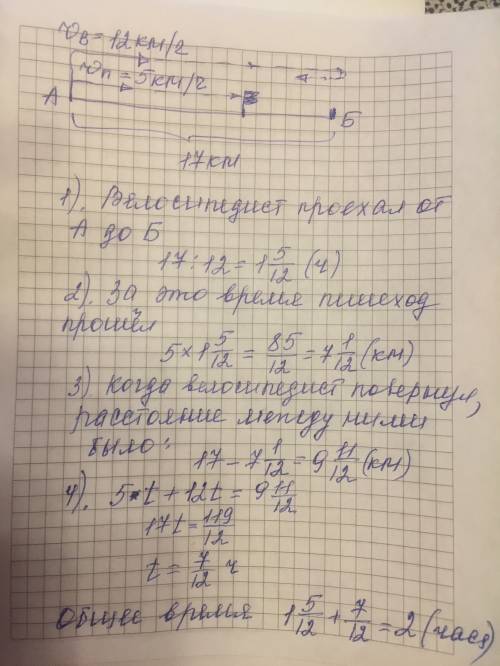 υв = 12 км/ч
υп = 5 км/ч
А Б
17 км
1). Велосипедист проехал от
А до Б
17 : 12 = 1 5/12 (ч)
2). За это время пешеход
прошёл
5 × 1 5/12 = 85/12 = 7 1/12 (км)
3) Когда велосипедист повернул,
расстояние между ними
было:
17 - 7 1/12 = 9 11/12 (км)
4). 5 * t + 12t = 9 11/12
17t = 119/12
t = 7/12 ч
Общее время 1 5/12 + 7/12 = 2 (часа)